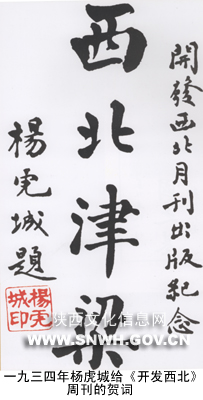 開發西北月刊出版紀念
西北津梁
楊虎城題
楊虎城印
陕西文化信息网
WWW.SNWH.GOV.CN
一九三四年杨虎城给《开发西北》
周刊的贺词